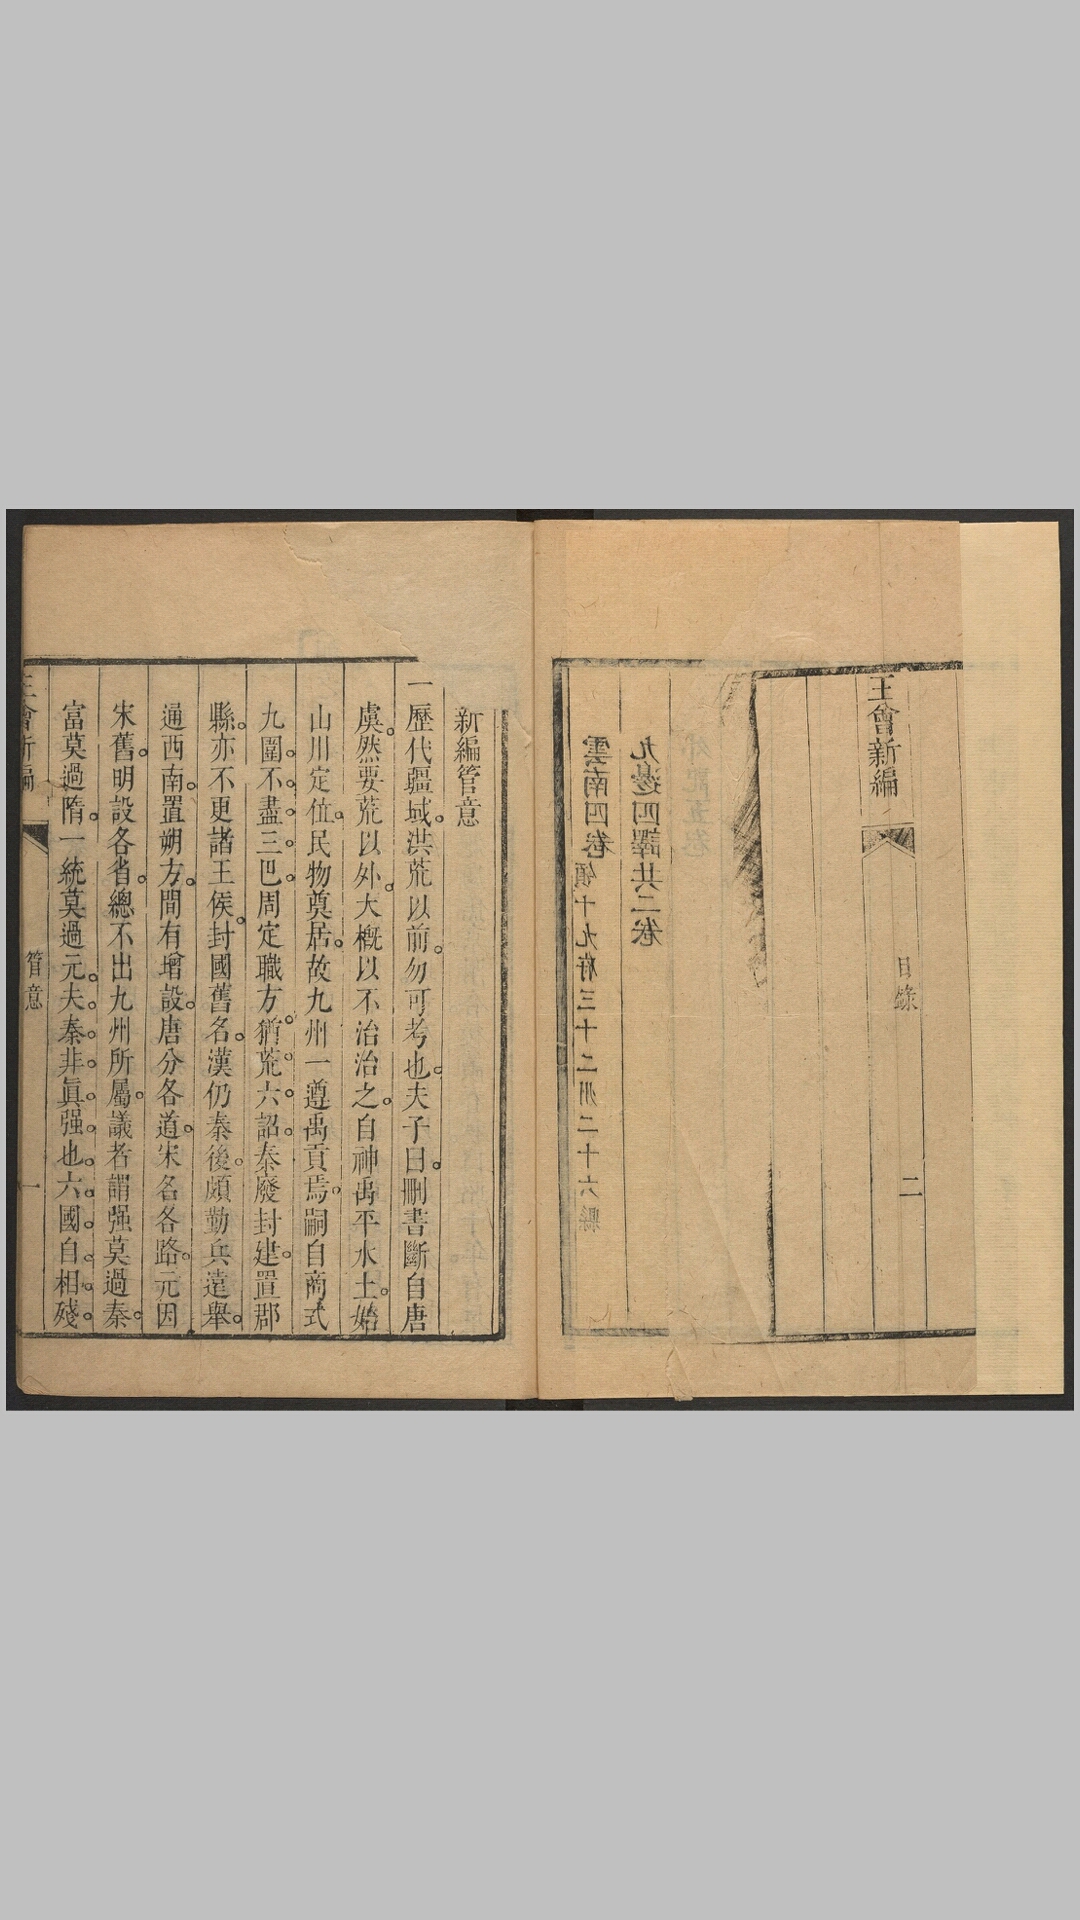 王會新編
目錄
二
九邊四譯共二卷
雲南四卷 領十九府三十二州二十六縣
新編管意
一歷代疆域。洪荒以前。勿可考也。夫子曰。刪書斷自唐
虞。然要荒以外。大概以不治治之。自神禹平水土。始
山川定位。民物奠居。故九州一遵禹貢焉。嗣自商式
九圍。不盡。三巴。周定職方。猶荒。六詔。秦廢封建。置郡
縣。亦不更諸王侯。封國舊名。漢仍秦後。頗勤兵遠舉。
通西南。置朔方。間有增設。唐分各道。宋名各路。元因
宋舊。明設各省。總不出九州所屬。議者謂强莫過秦。
富莫過隋。一統莫過元。夫。秦。非。眞。强。也。六。國。自。相。殘。
王會新編
管意
一